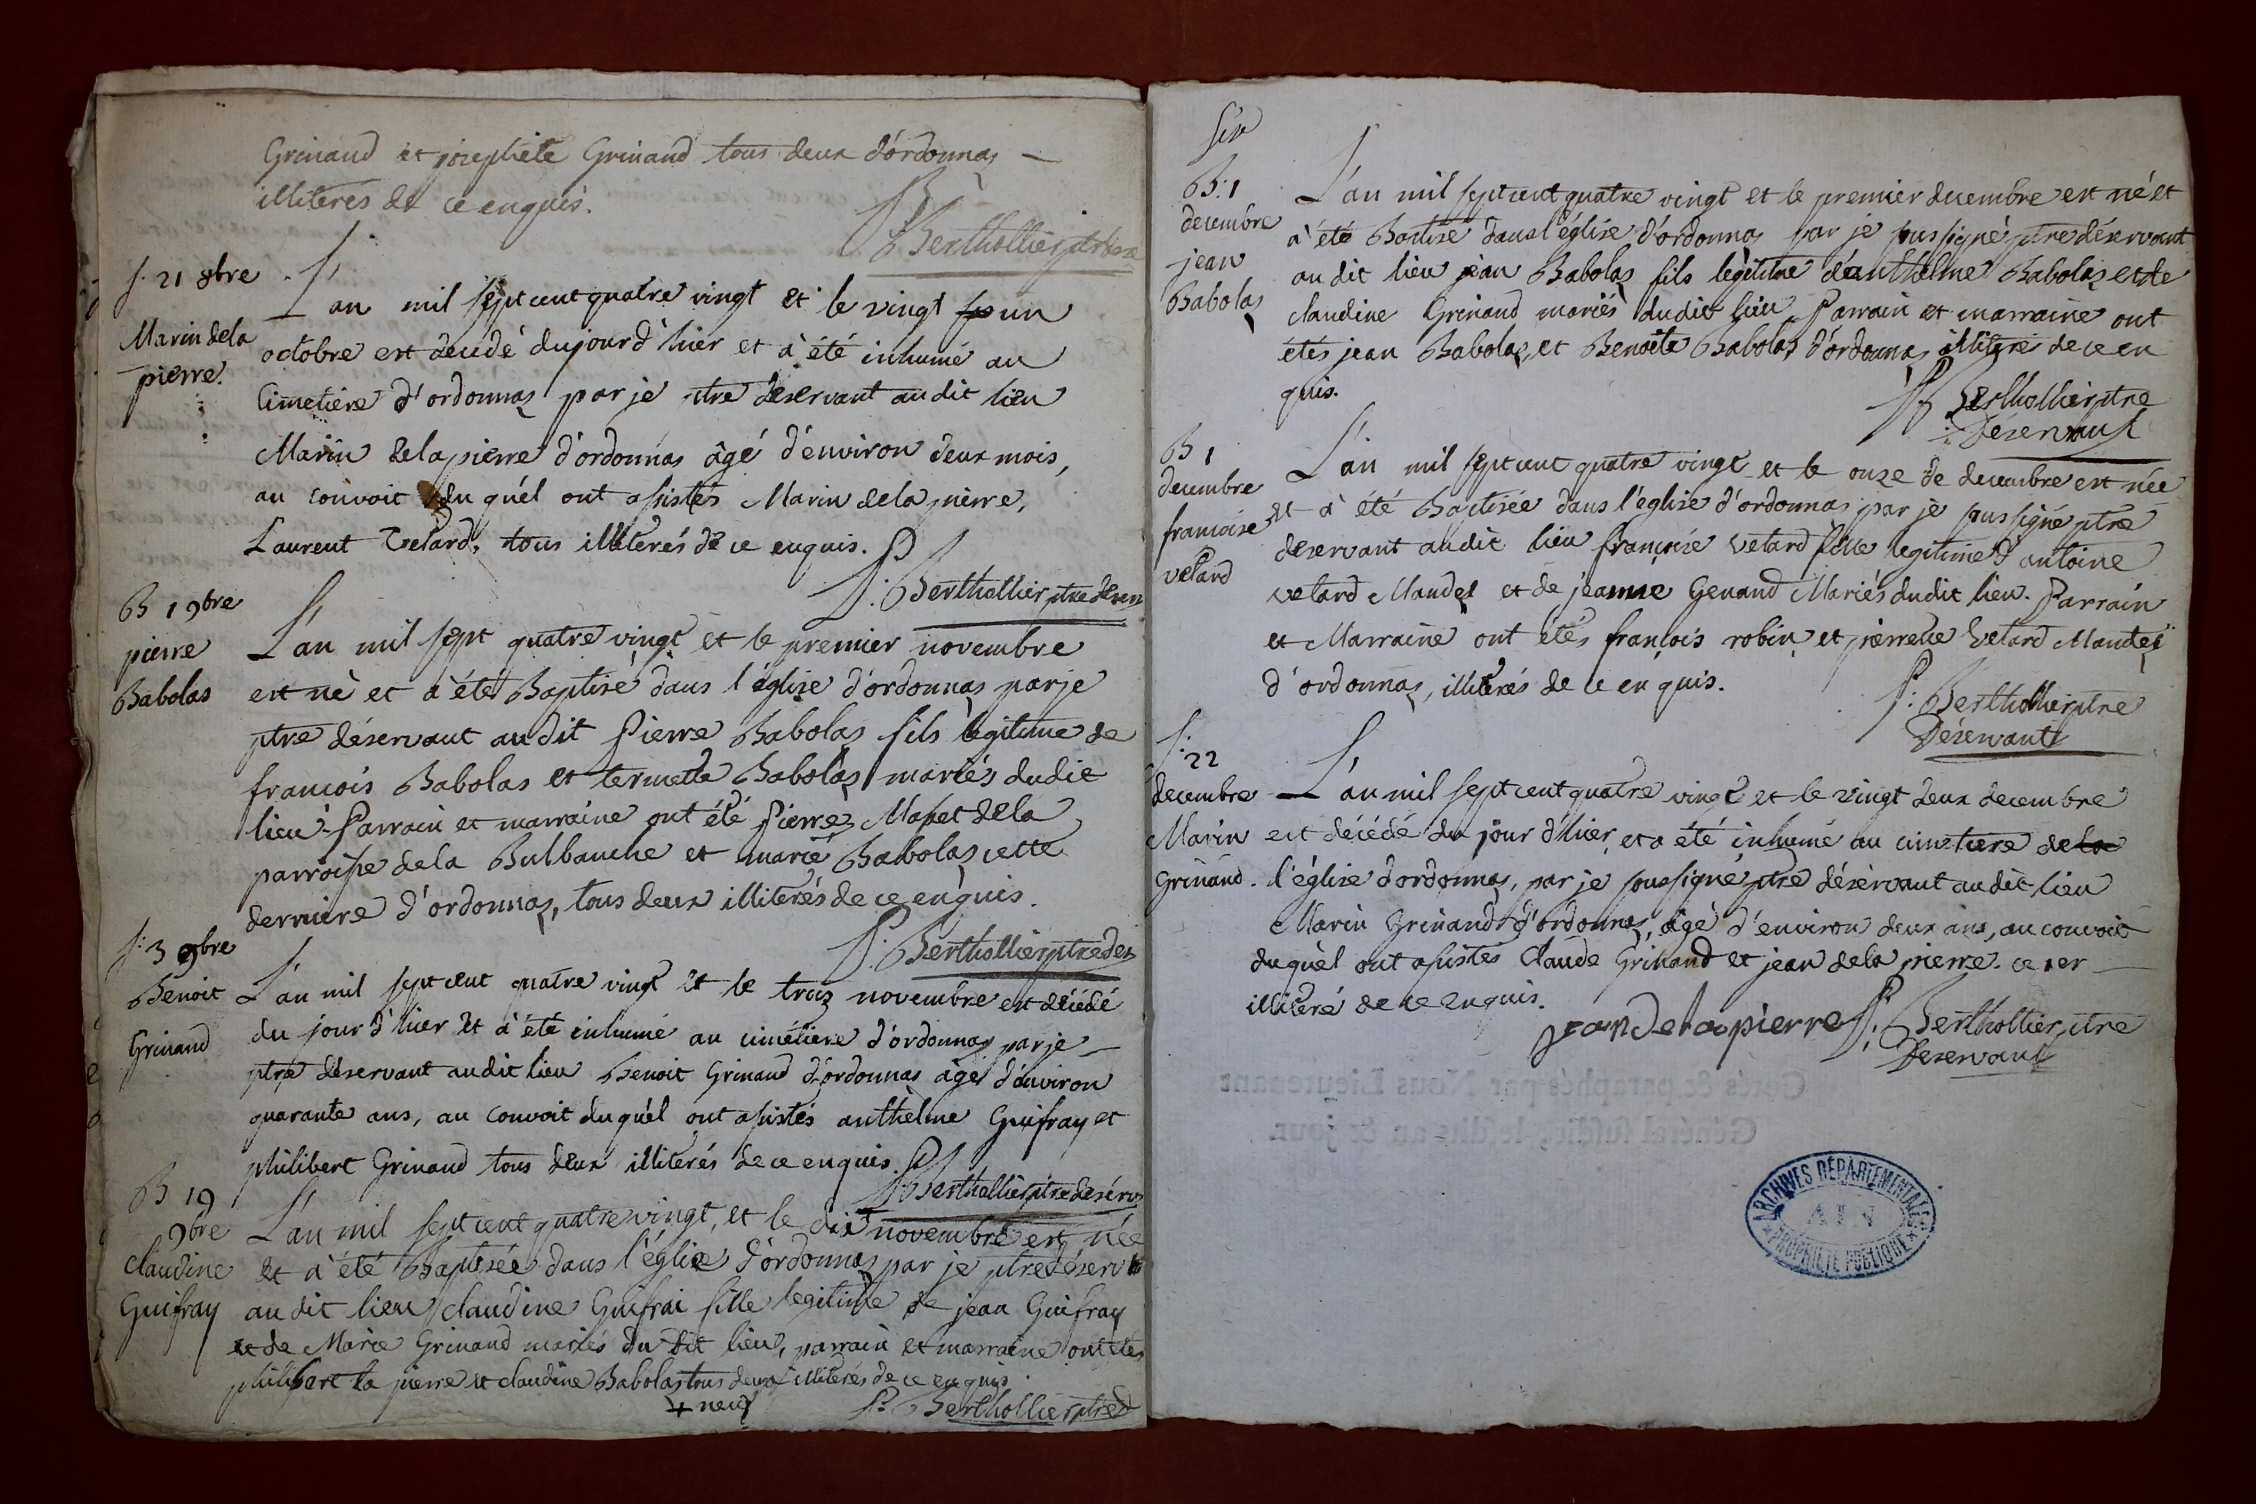 Grinaud et josephete Grinaud tous deux d'ordonnas
illiterés de ce enquis.
P. Berthollier ptre
S. 21 8bre
Marin dela
pierre.
L'an mil sept cent quatre vingt et le vingt un
octobre est decedé du jour d'hier et à été inhumé au
Cimetiere d'ordonnas par je ptre deservant au dit lieu
Marin delapierre d'ordonnas âgé d'environ deux mois,
au convoit du quel ont assistés Marin dela pierre,
Laurent Vetard, tous illiterés de ce enquis.
P. Berthollier ptre deserv
B 1 9bre
pierre
Babolas
L'an mil sept quatre vingt et le premier novembre
est né et à été Baptisé dans l'église d'ordonnas par je
ptre déservant au dit Pierre Babolas fils légitime de
francois Babolas et termette Babolas mariés dudit
lieu. Parrain et marraine ont été Pierre Mabet dela
parroisse dela Bulbanche et marie Babolas cette
derniere d'ordonnas, tous deux illiterés de ce enquis.
P. Berthollier ptre des
S. 3 9bre
Benoit
Grinaud
L'an mil sept cent quatre vingt et le troiz novembre est décédé
du jour d'hier et à été inhumé au cimétiere d'ordonnas par je
ptre déservant au dit lieu Benoit Grinaud d'ordonnas agé d'environ
quarante ans, au convoit du quel ont assistés anthelme Guifray et
philibert Grinaud tous deux illiterés de ce enquis.
P. Berthollier ptre deserv
B 19
9bre
Claudine
Guifray
L'an mil sept cent quatre vingt, et le dix novembre est née
et à été Baptisée dans l'église d'ordonnas par je ptre déserv
au dit lieu claudine Guifrai fille legitime de jean Guifray
et de Marie Grinaud mariés du dit lieu, parrain et marraine ont étés
philibert la pierre et claudine Babolas tous deux illiterés de ce enquis
+ neuf
P. Berthollier ptre d
six
B. 1
decembre
jean
Babolas
L'an mil sept cent quatre vingt et le premier decembre est né et
à été Baptisé dans l'église d'ordonnas par je soussigné ptre déservant
au dit lieu jean Babolas fils légitime d'anthelme Babolas et de
claudine Grinaud mariés dudit lieu Parrain et marraine ont
étés jean Babolas, et Benoite Babolas d'ordonnas illiterés de ce en
quis.
P. Berthollier ptre
Deservant
B 1
decembre
francoise
vetard
L'an mil sept cent quatre vingt et le onze de decembre est née
et à été Baptisée dans l'église d'ordonnas par je soussigné ptre
deservant au dit lieu françoise vetard fille legitime d'antoine
vetard Maudet et de jeanne Genand Mariés dudit lieu. Parrain
et Marraine ont étés françois robin et pierrette vetard Maudet
d'ordonnas, illiterés de ce en quis.
P. Berthollier ptre
Déservant
S. 22
decembre
Marin
Grinaud.
L'an mil sept cent quatre vingt et le vingt deux decembre
est décédé du jour d'hier, et a été inhumé au cimetiere de la
l'église d'ordonnas, par je soussigné ptre déservant au dit lieu
Marin Grinaud d'ordonnas, âgé d'environ deux ans, au convoit
duquel ont assistés Claude Grinaud et jean dela pierre. ce 1er
illiteré de ce enquis.
jean Delapierre P. Berthollier ptre
Deservant
Cotés & paraphés par Nous Lieutenant
Général susdit, le dits an & jour
ARCHIVES DÉPARTEMENTALES
AIN
PROPRIÉTÉ PUBLIQUE